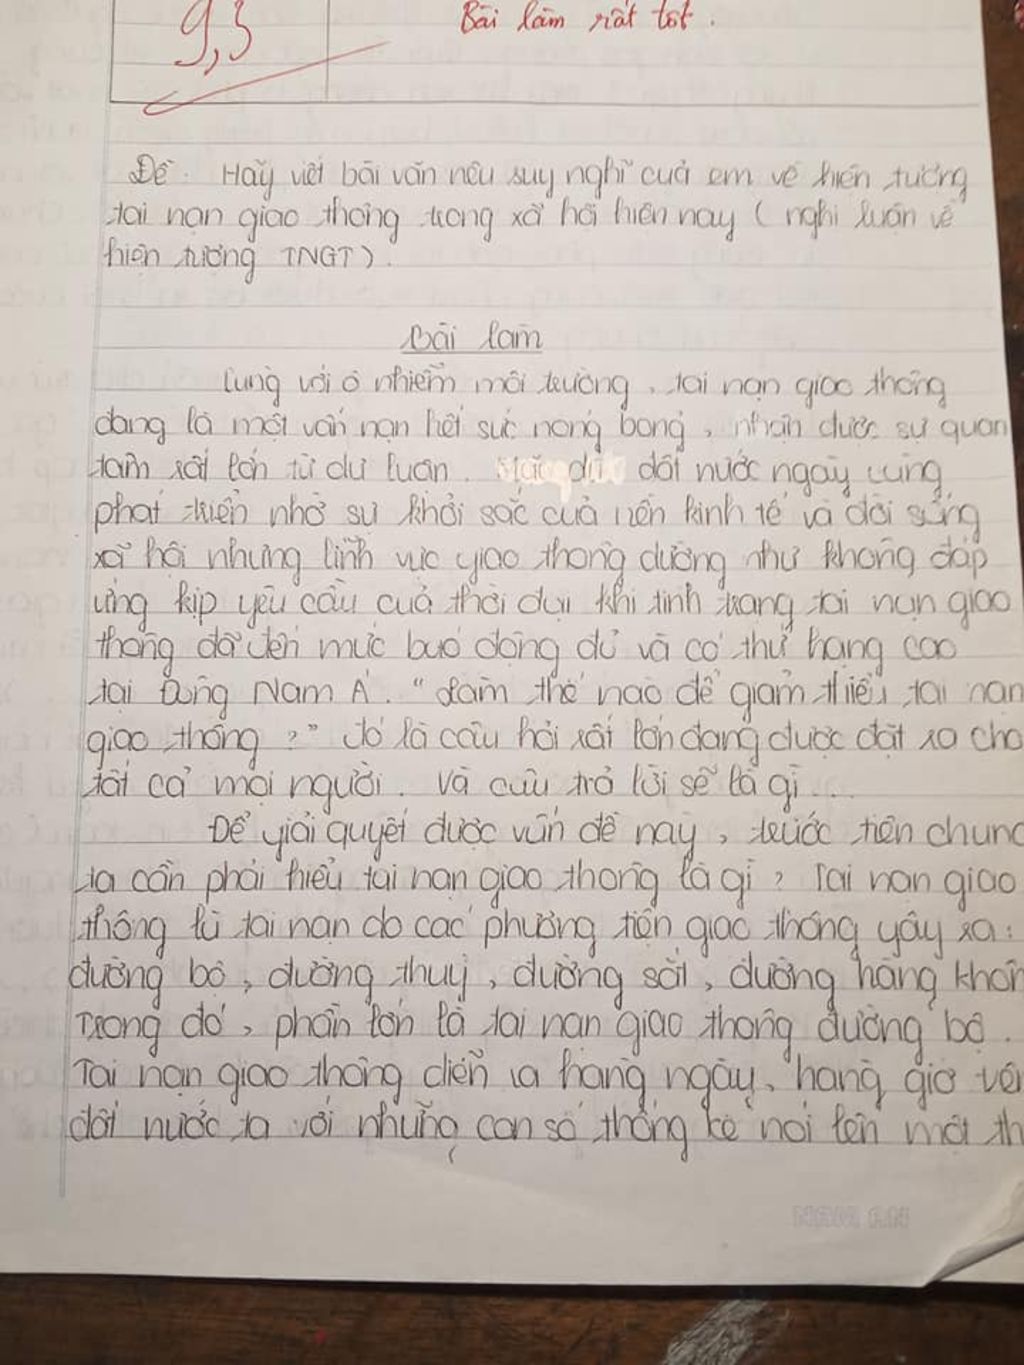 9,3
Bài làm rất tốt.
Đề. Hãy viết bài văn nêu suy nghĩ của em về hiện tượng
tai nạn giao thông trong xã hội hiện nay (nghị luận về
hiện tượng TNGT).
Bài làm
Cùng với ô nhiễm môi trường, tai nạn giao thông
đang là một vấn nạn hết sức nóng bỏng, nhận được sự quan
tâm rất lớn từ dư luận. Mặc dù đất nước ngày càng
phát triển nhờ sự khởi sắc của nền kinh tế và đời sống
xã hội nhưng lĩnh vực giao thông dường như không đáp
ứng kịp yêu cầu của thời đại khi tình trạng tai nạn giao
thông đã đến mức báo động đỏ và có thứ hạng cao
tại Đông Nam Á. "Làm thế nào để giảm thiểu tai nạn
giao thông?" đó là câu hỏi rất lớn đang được đặt ra cho
tất cả mọi người. Và câu trả lời sẽ là gì...
Để giải quyết được vấn đề này, trước tiên chúng
ta cần phải hiểu tai nạn giao thông là gì? Tai nạn giao
thông là tai nạn do các phương tiện giao thông gây ra:
đường bộ, đường thuỷ, đường sắt, đường hàng khôn
Trong đó, phần lớn là tai nạn giao thông đường bộ.
Tai nạn giao thông diễn ra hàng ngày, hàng giờ trên
đất nước ta với những con số thống kê nói lên một th
NAM AN